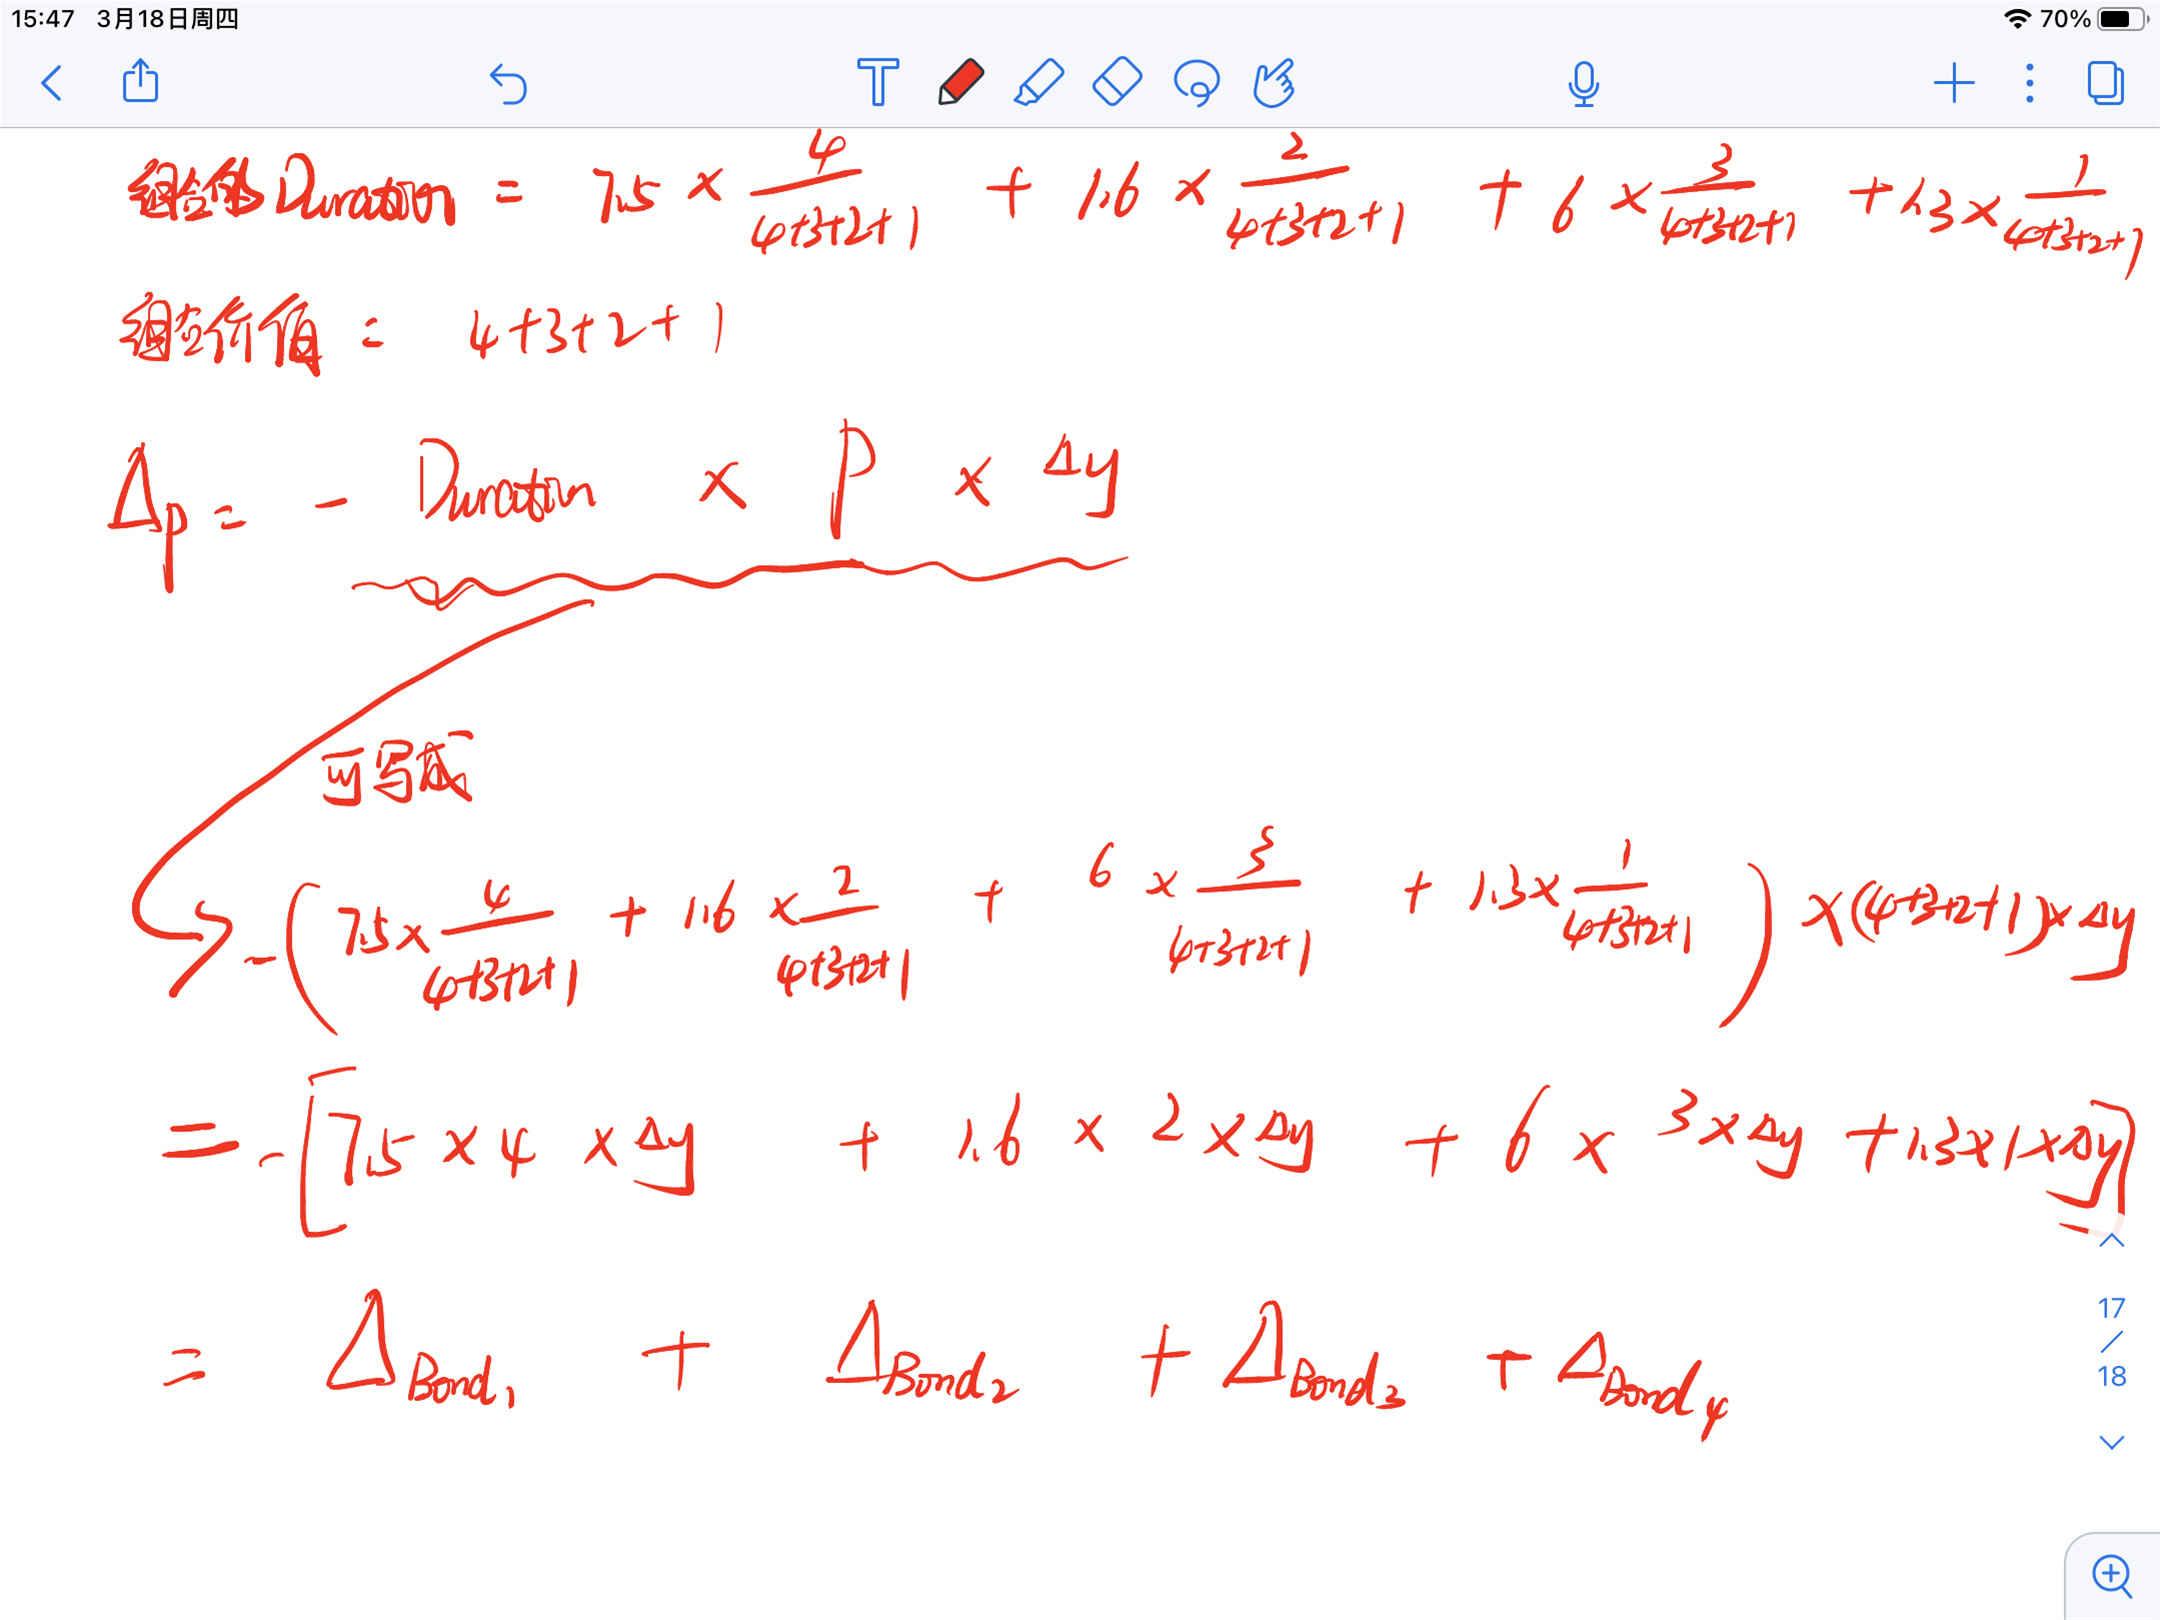 15:47 3月18日周四 70%
组合的Duration = 7.5 × 4/(4+3+2+1) + 1.6 × 2/(4+3+2+1) + 6 × 3/(4+3+2+1) + 1.3 × 1/(4+3+2+1)
组合价值 = 4+3+2+1
Δp = - Duration × P × Δy
可写成
-(7.5 × 4/(4+3+2+1) + 1.6 × 2/(4+3+2+1) + 6 × 3/(4+3+2+1) + 1.3 × 1/(4+3+2+1)) × (4+3+2+1) × Δy
= -[7.5 × 4 × Δy + 1.6 × 2 × Δy + 6 × 3 × Δy + 1.3 × 1 × Δy]
= ΔBond₁ + ΔBond₂ + ΔBond₃ + ΔBond₄
17
/
18